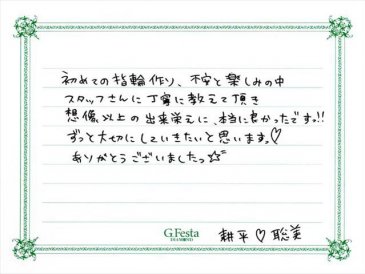 初めての指輪作り、不安と楽しみの中
スタッフさんに丁寧に教えて頂き
想像以上の出来栄えに、本当に良かったです!!
ずっと大切にしていきたいと思います。♡
ありがとうございましたっ☆彡
G.Festa
DIAMOND
耕平 ♡ 聡美